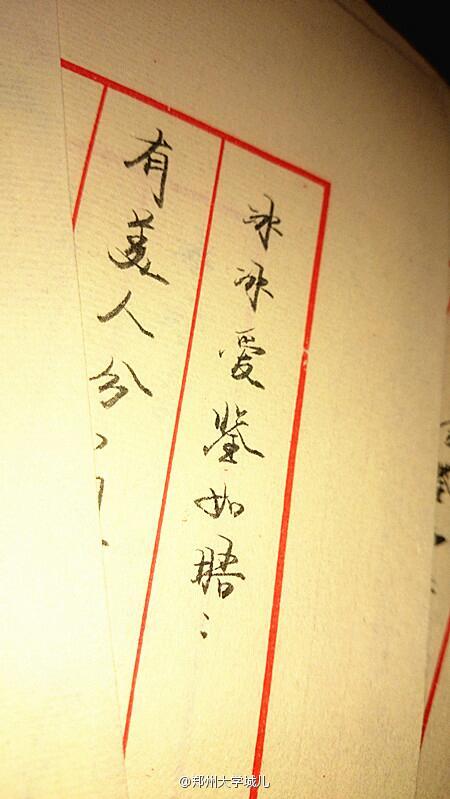 冰冰爱鉴如晤：
有美人兮
@郑州大学城儿